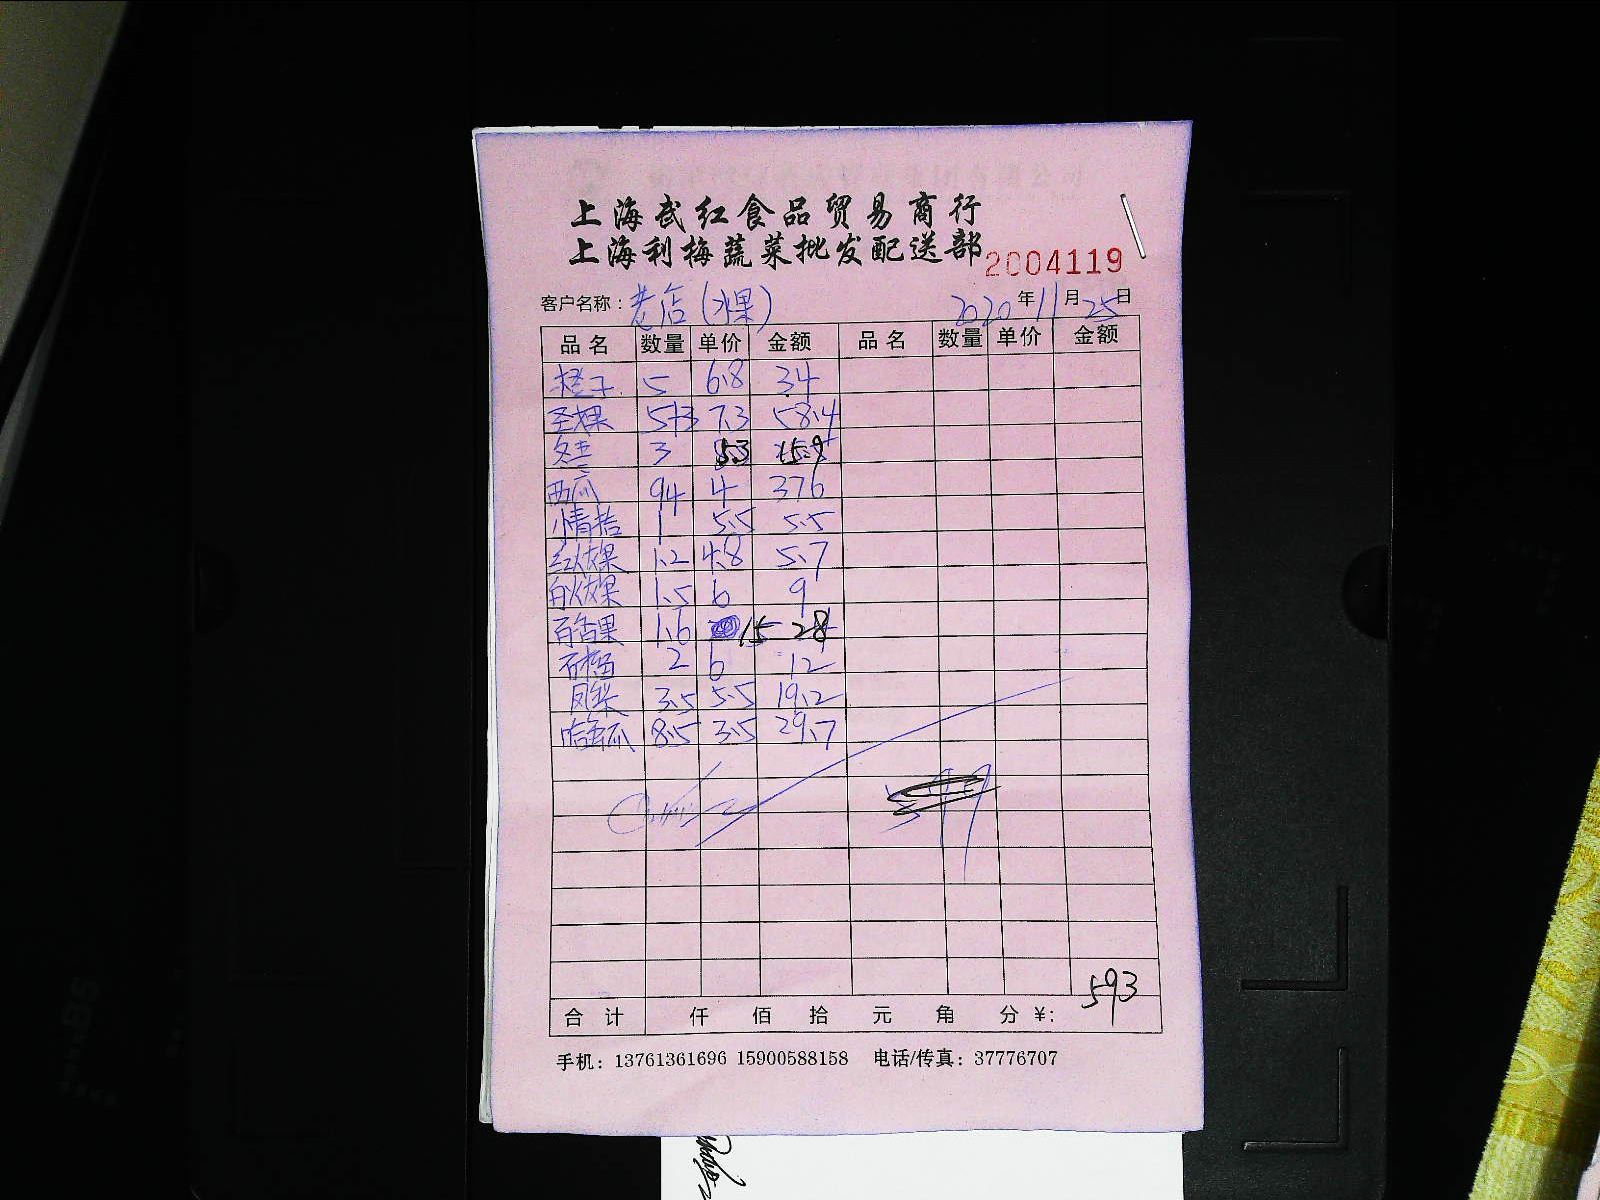 上海武红食品贸易商行
上海利梅蔬菜批发配送部
2004119
客户名称：老店(水果) 2020年11月25日
品名 数量 单价 金额 品名 数量 单价 金额
橙子 5 6.8 34
圣果 5+3 7.3 58.4
冬枣 3 5.3 15.9
西瓜 94 4 376
小青桔 1 5.5 5.5
红火龙果 1.2 4.8 5.7
白火龙果 1.5 6 9
百香果 1.6 15 28
石榴 2 6 12
凤梨 3.5 5.5 19.2
哈密瓜 8.5 3.5 29.7
593
合计 仟 佰 拾 元 角 分 ¥:
手机：13761361696 15900588158 电话/传真：37776707